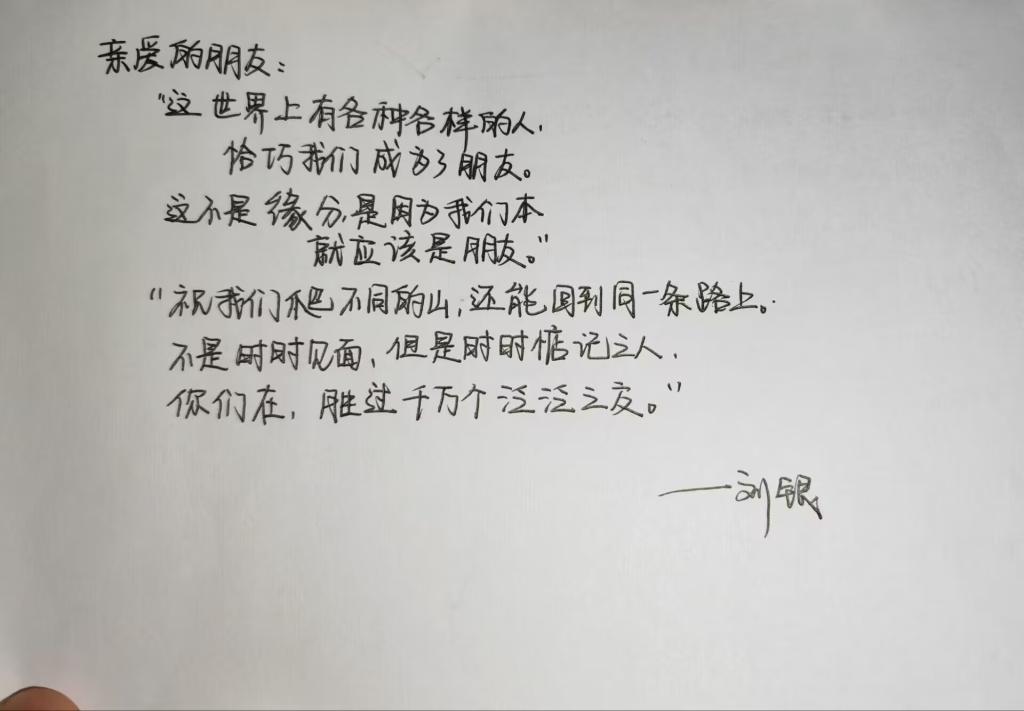 亲爱的朋友：
"这世界上有各种各样的人，
恰巧我们成为了朋友。
这不是缘分，是因为我们本
就应该是朋友。"
"祝我们爬不同的山，还能回到同一条路上。
不是时时见面，但是时时惦记之人，
你们在，胜过千万个泛泛之交。"
——刘银